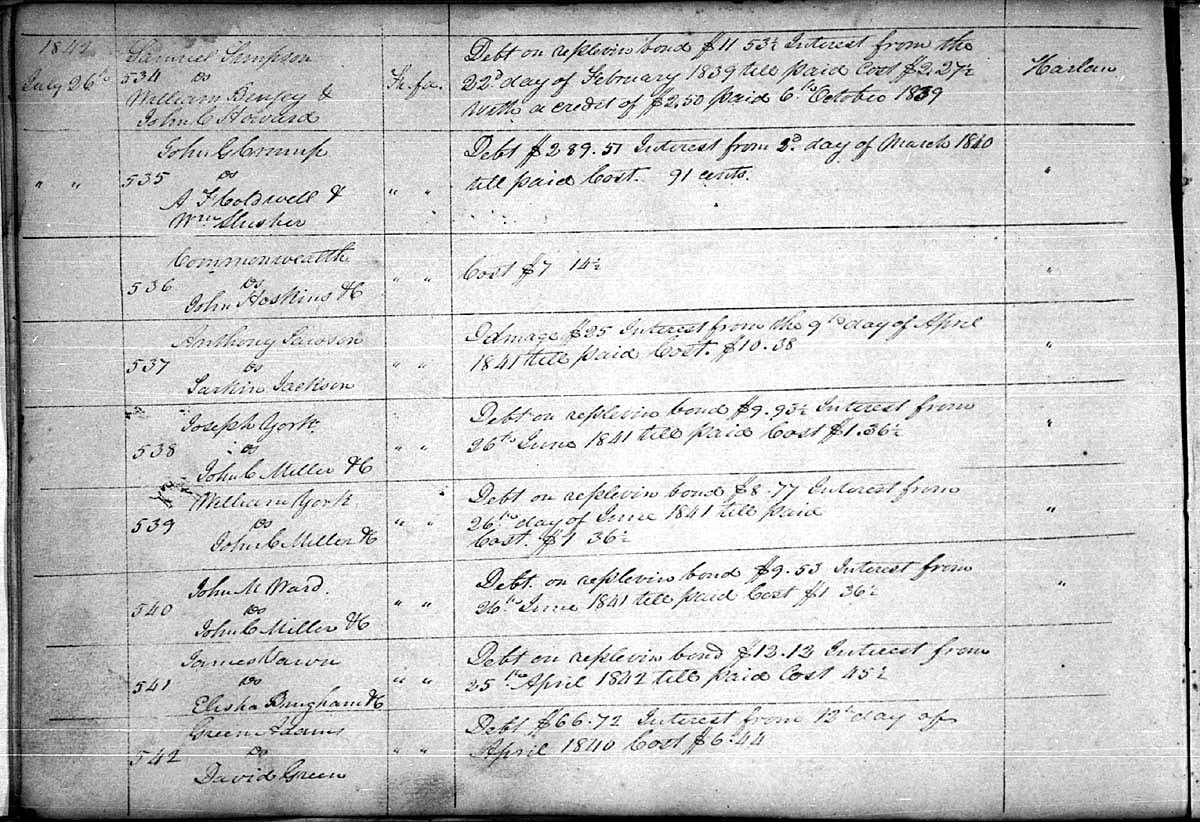 1842 Samuel Simpson Debt on replevin bond $11 53½ Interest from the
July 26th 534 vs Fi.fa. 22d day of February 1839 till paid Cost $2.27½ Harlan
William & with a credit of $2.50 paid 6th October 1839
John C Howard
John G Crump Debt $289.51 Interest from 2d. day of March 1840
" " 535 vs " " till paid Cost. 91 cents. "
A F Coldwell &
Wm Slusher
Commonwealth
536 vs " " Cost $7 14½ "
John Hoskins &C
Anthony Ddmage $25 Interest from the 9th day of April
537 vs " " 1841 till paid Cost. $10.38 "
Larkin Jackson
Joseph York Debt on replevin bond $9.93½ Interest from
538 vs " " 26th June 1841 till paid Cost $1.36½ "
John C Miller &C
William York Debt on replevin bond $8.77 Interest from
539 vs " " 26th day of June 1841 till paid "
John C Miller &C Cost $1 36½
John M Ward. Debt. on replevin bond $9.53 Interest from
540 vs " " 26th June 1841 till paid Cost $1 36½ "
John C Miller &C
James Debt on replevin bond $13.13 Interest from
541 vs " " 25th April 1842 till paid Cost 45½
Elisha &C
Green Adams Debt $66.72 Interest from 12th day of
542 vs " " April 1840 Cost $6.44
David Green